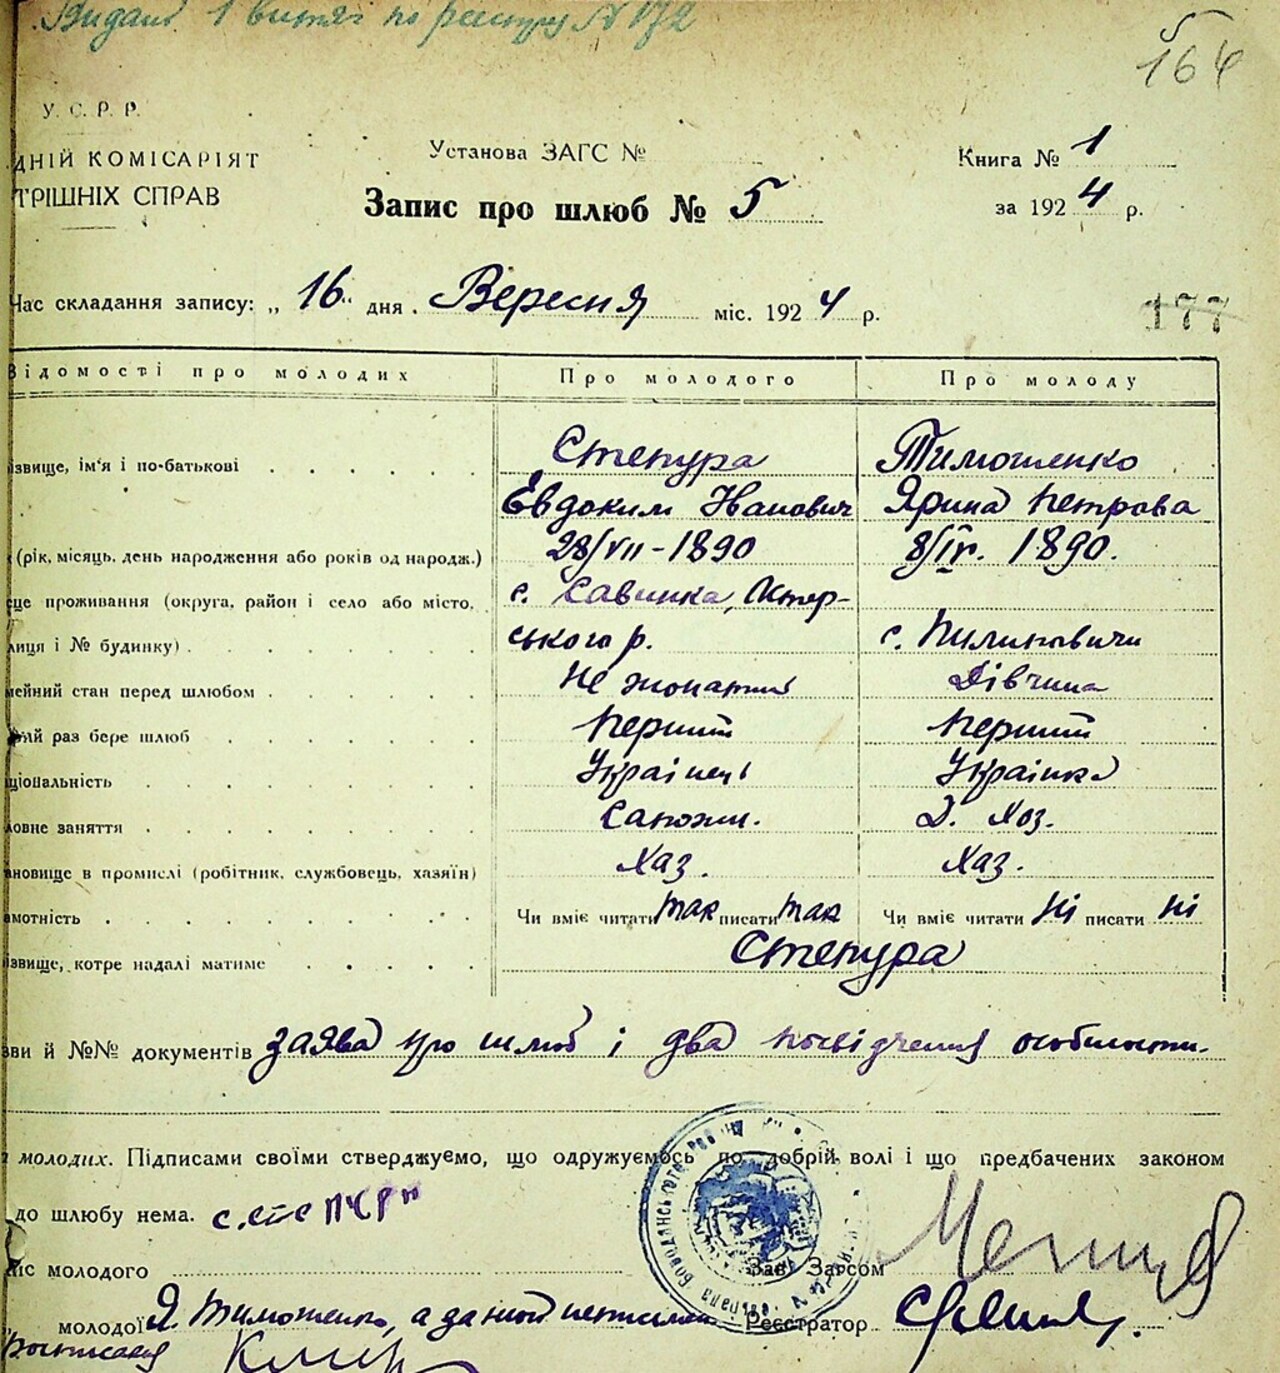 Видано 1 витяг по реєстру № 172
5
164
У. С. Р. Р.
ДНІЙ КОМІСАРІЯТ
ТРІШНІХ СПРАВ
Установа ЗАГС №
Запис про шлюб № 5
Книга № 1
за 1924 р.
Час складання запису: „ 16 „ дня . Вересня міс. 1924 р.
177
Відомості про молодих Про молодого Про молоду
ізвище, ім'я і по-батькові Степура Тимошенко
Євдоким Иванович Ярина Петрова
(рік, місяць, день народження або років од народж.) 28/VII-1890 8/IV. 1890.
сце проживання (округа, район і село або місто, с. Савинка, Остер-
лиця і № будинку) ського р. с. Пилиповичи
мейний стан перед шлюбом Не жонатий Дівчина
рий раз бере шлюб Перший Перший
ціональність Українець Українка
ловне заняття Сапожн. Д. Хоз.
ановище в промислі (робітник, службовець, хазяїн) Хаз. Хаз.
амотність Чи вміє читати так писати так Чи вміє читати Ні писати Ні
ізвище, котре надалі матиме Степура
зви й №№ документів заява про шлюб і два посвідчення особистости.
молодих. Підписами своїми стверджуємо, що одружуємось по добрій волі і що предбачених законом
до шлюбу нема.
іс молодого Зав. Загсом
молодої Я. Тимошенко, а за нєї неписмен. Реєстратор